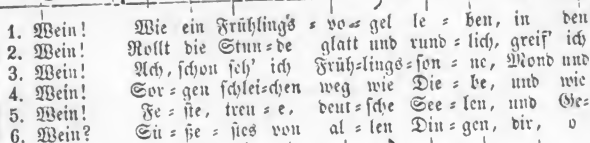 1. Wein! Wie ein Frühlings = vo = gel le = ben, in den
2. Wein! Rollt die Stun = de glatt und rund = lich, greif' ich
3. Wein! Ach, schon seh' ich Früh = lings = son = ne, Mond und
4. Wein! Sor = gen schlei = chen weg wie Die = be, und wie
5. Wein! Fe = ste, treu = e, deut = sche See = len, und Ge=
6. Wein? Sü = ße = stes von al = len Din = gen, dir, o